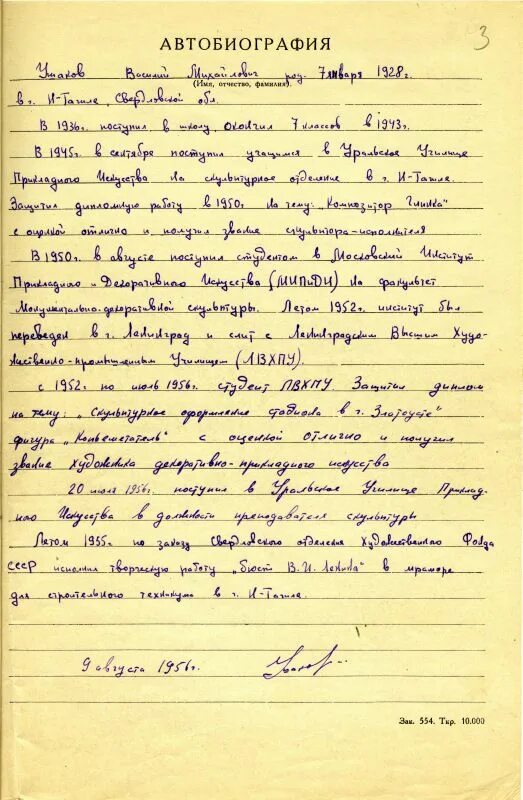 3
АВТОБИОГРАФИЯ
Ушаков Василий Михайлович род. 7 января 1928г.
(Имя, отчество, фамилия).
в г. Н-Тагиле, Свердловской обл.
В 1936г. поступил в школу, окончил 7 классов в 1943г.
В 1945г. в сентябре поступил учащимся в Уральское Училище
Прикладного Искусства на скульптурное отделение в г. Н-Тагиле.
Защитил дипломную работу в 1950г. на тему: „Композитор Глинка"
с оценкой отлично и получил звание скульптора-исполнителя
В 1950г. в августе поступил студентом в Московский Институт
Прикладного и Декоративного Искусства (МИПиДИ) на факультет
Монументально-декоративной скульптуры. Летом 1952г. институт был
переведен в г. Ленинград и слит с Ленинградским Высшим Худо-
жественно-промышленным Училищем (ЛВХПУ).
с 1952г. по июль 1956г. студент ЛВХПУ. Защитил диплом
на тему: „Скульптурное оформление стадиона в г. Златоусте"
фигура „Копьеметатель" с оценкой отлично и получил
звание художника декоративно-прикладного искусства
20 июля 1956г. поступил в Уральское Училище Приклад-
ного Искусства в должности преподавателя скульптуры
Летом 1955г. по заказу Свердловского отделения Художественного Фонда
СССР исполнил творческую работу „бюст В.И. Ленина" в мраморе
для строительного техникума в г. Н-Тагиле.
9 августа 1956г. Ушаков
Зак. 554. Тир. 10.000